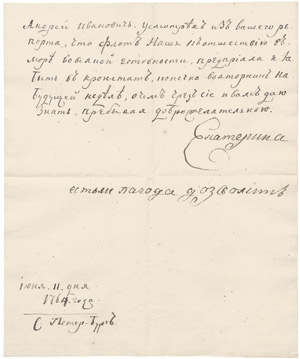 Андрей Ивановичъ. Усмотрѣвъ изъ вашего ре-
порта, что флотъ нашъ къ отшествїю въ
море въ полной готовности, предпрїяла я
въ Кронштатъ, во вторникъ на
будущей недѣлѣ, о чемъ чрезъ сїе и вамъ даю
знать. пребывая доброжелательною.
Екатерина
естьли пагода дозволитъ
їюня. 11. дня
1764 года
С Петер-Бургъ.